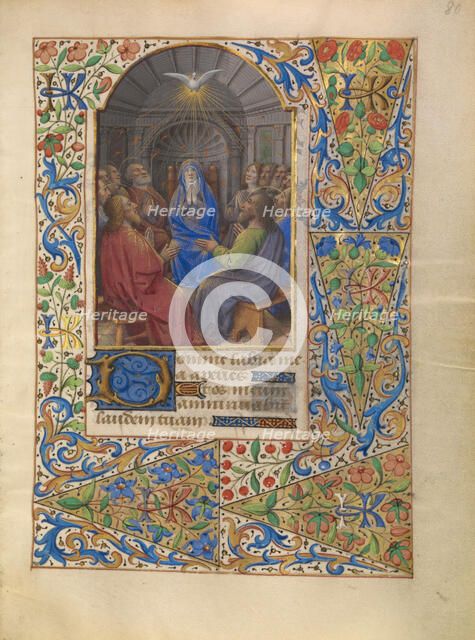 80
Heritage Heritage
Heritage Heritage
©
Domine labia me
a aperies
Et os meum
Heritage Heritage
laudem tuam